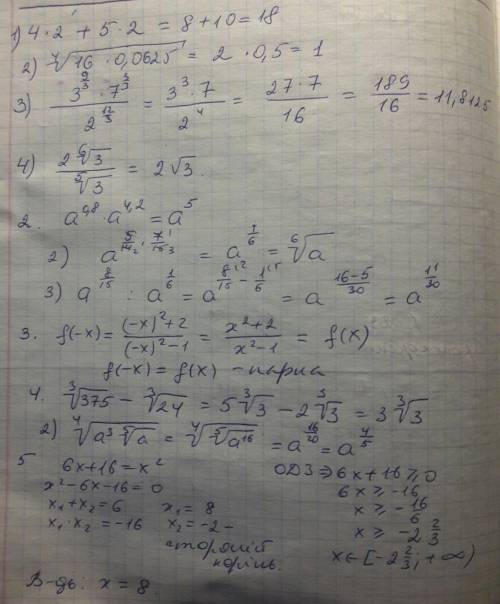 1) 4·2 + 5·2 = 8+10=18
2) ∜(16·0,0625) = 2·0,5=1
3) (3^(9/3)·7^(3/3))/(2^(12/3)) = (3³·7)/(2⁴) = (27·7)/16 = 189/16 = 11,8125
4) (2⁶√3)/(⁵√3) = 2√3.
2. a^(0,8)·a^(4,2) = a⁵
2) a^(5/14·7/15) = a^(1/6) = ⁶√a
3) a^(8/15) : a^(1/6) = a^(8/15 - 1/6) = a^((16-5)/30) = a^(11/30)
3. f(-x) = ((-x)²+2)/((-x)²-1) = (x²+2)/(x²-1) = f(x)
f(-x) = f(x) - парна
4. ³√375 - ³√24 = 5³√3 - 2³√3 = 3³√3
2) ⁴√(a³ ⁵√a) = ⁴√(⁵√(a¹⁶)) = a^(16/20) = a^(4/5)
5 6x+16=x²
x²-6x-16=0
x₁+x₂=6 x₁=8
x₁·x₂=-16 x₂=-2 -
сторонній
корінь.
ОДЗ ⇒ 6x+16≥0
6x ≥ -16
x ≥ -16/6
x ≥ -2 2/3
x∈[-2 2/3; +∞)
В-дь: x = 8.